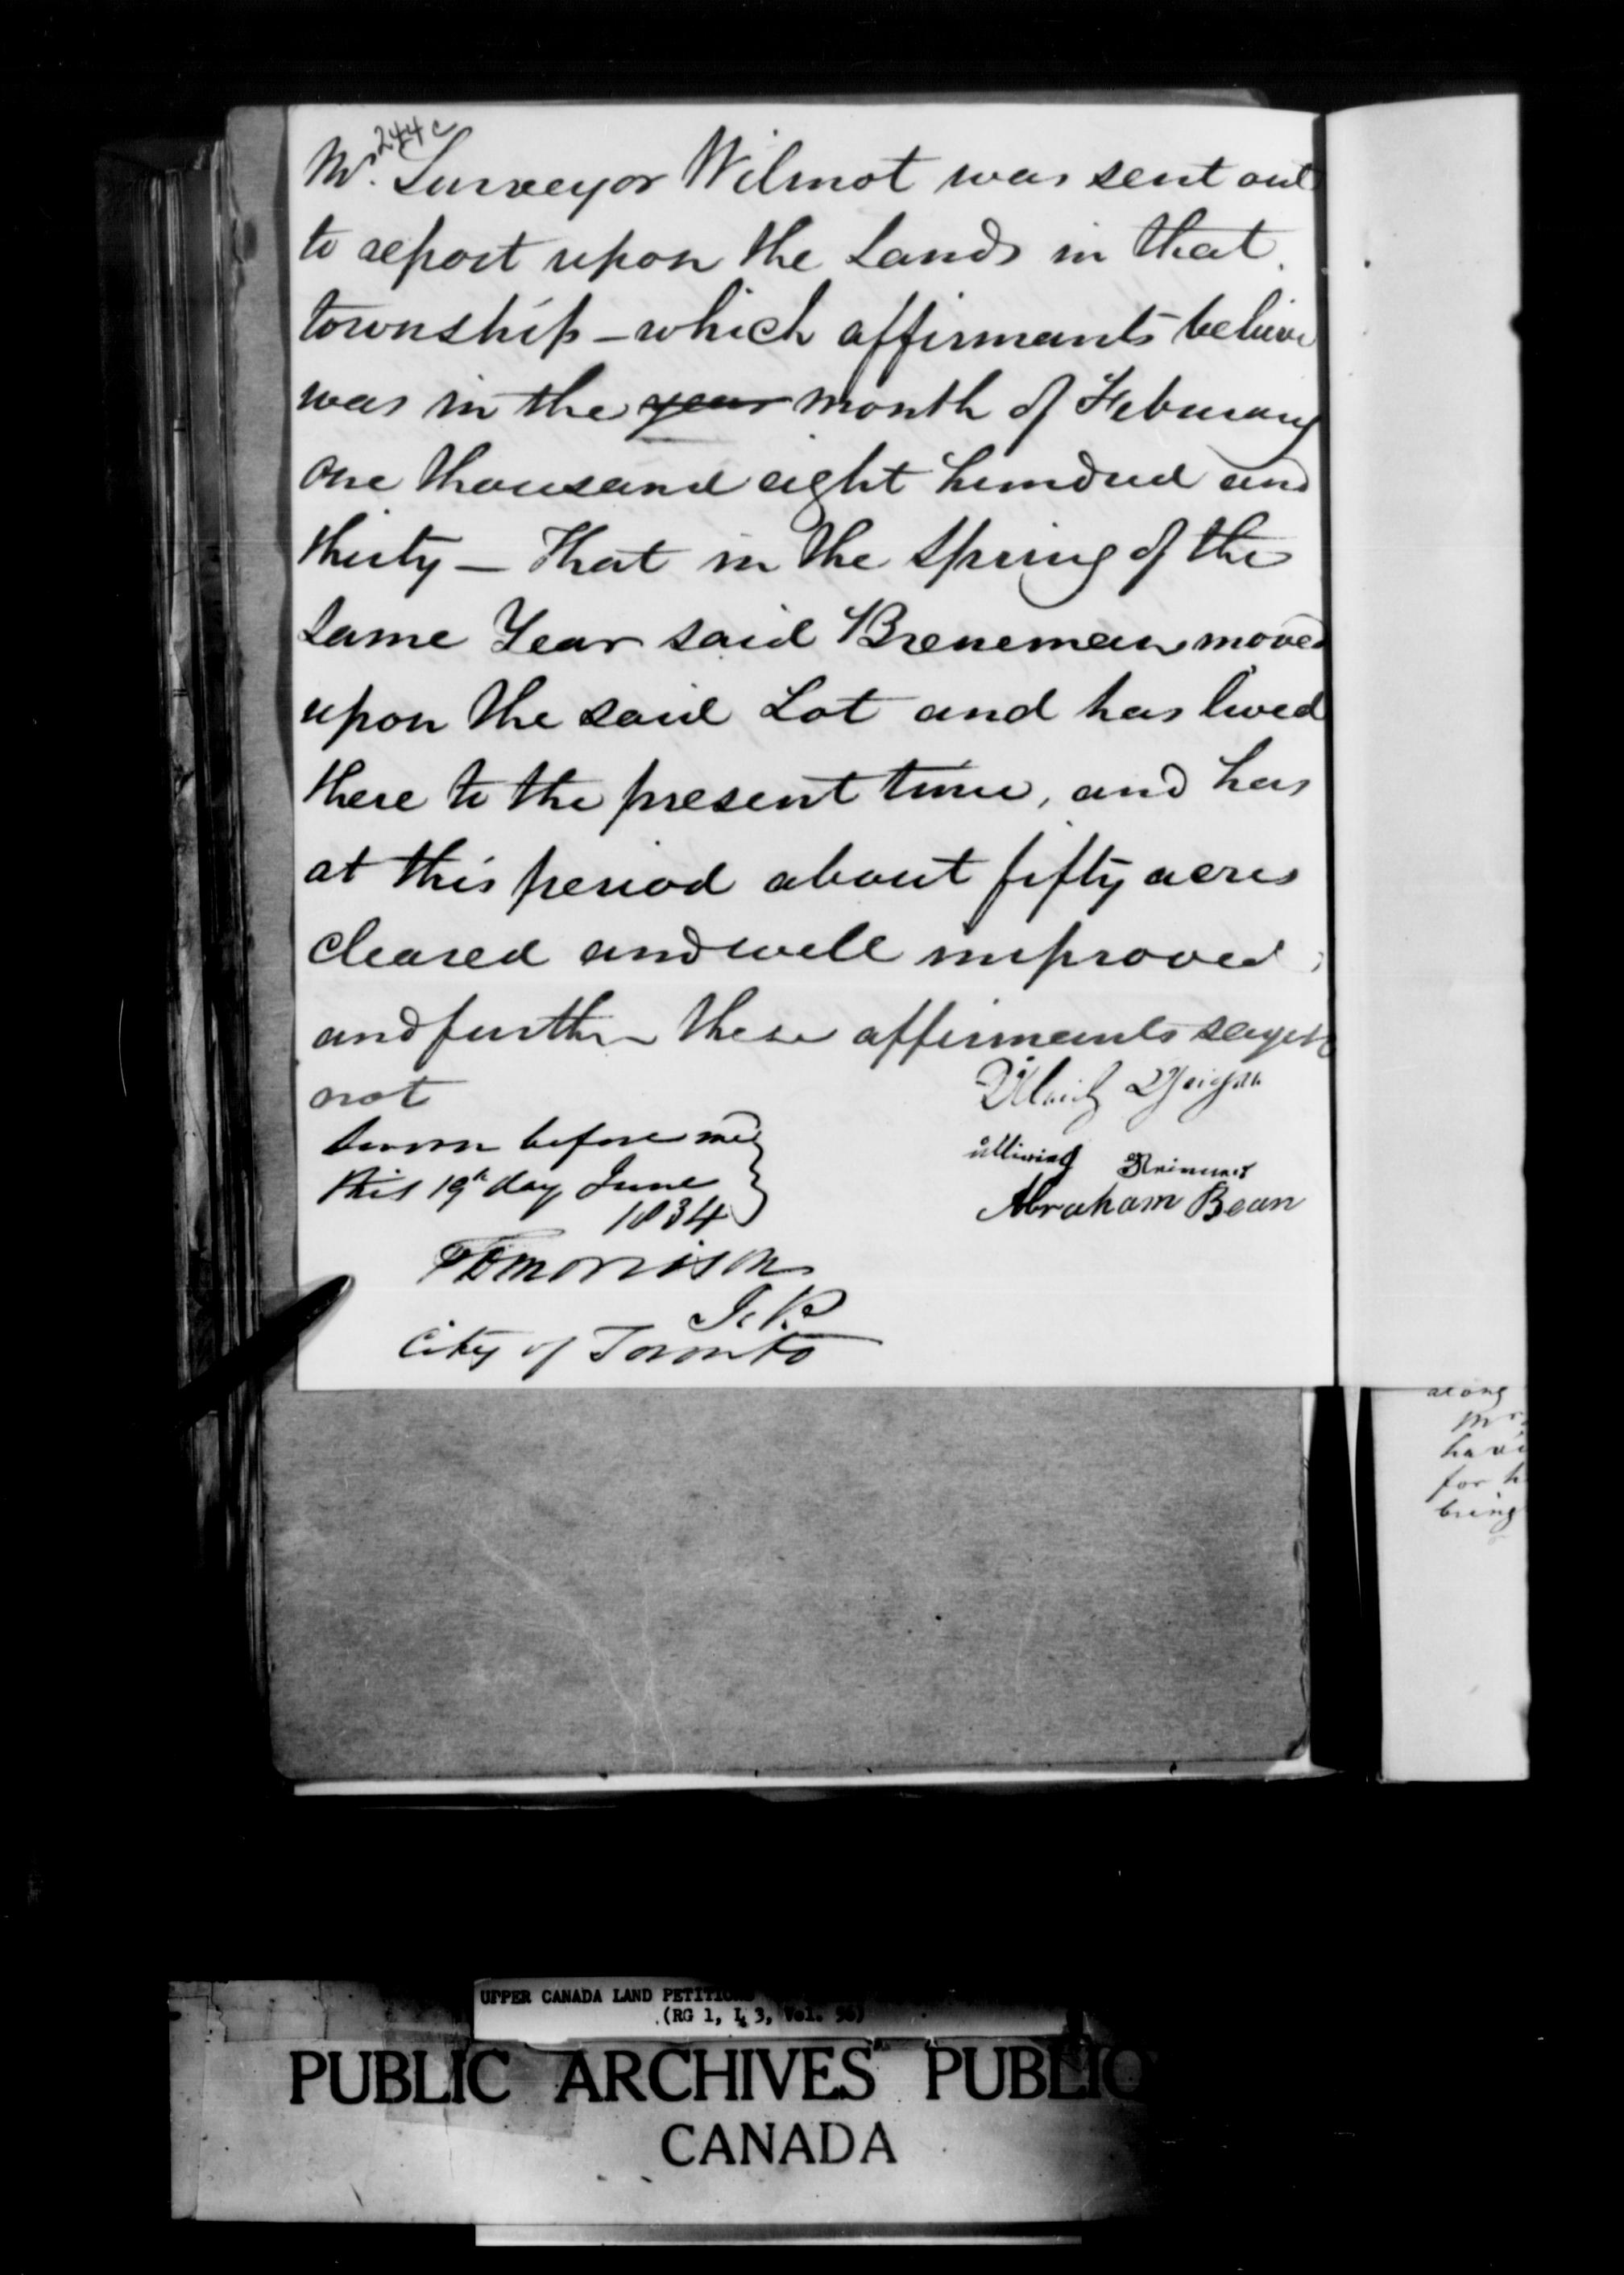 244c
Mr. Surveyor Wilmot was sent out
to report upon the Lands in that
township – which affirmants believe
was in the year month of February
one thousand eight hundred and
thirty – That in the Spring of the
same Year said Breneman moved
upon the said Lot and has lived
there to the present time, and has
at this period about fifty acres
cleared and well improved;
and further these affirmants sayeth
not
Sworn before me
this 19th day June
1834
Morrison
J.P.
City of Toronto
Abraham Bean
along
for h
bring
UPPER CANADA LAND PETITIONS
(RG 1, L 3, Vol. 56)
PUBLIC ARCHIVES PUBLIC
CANADA